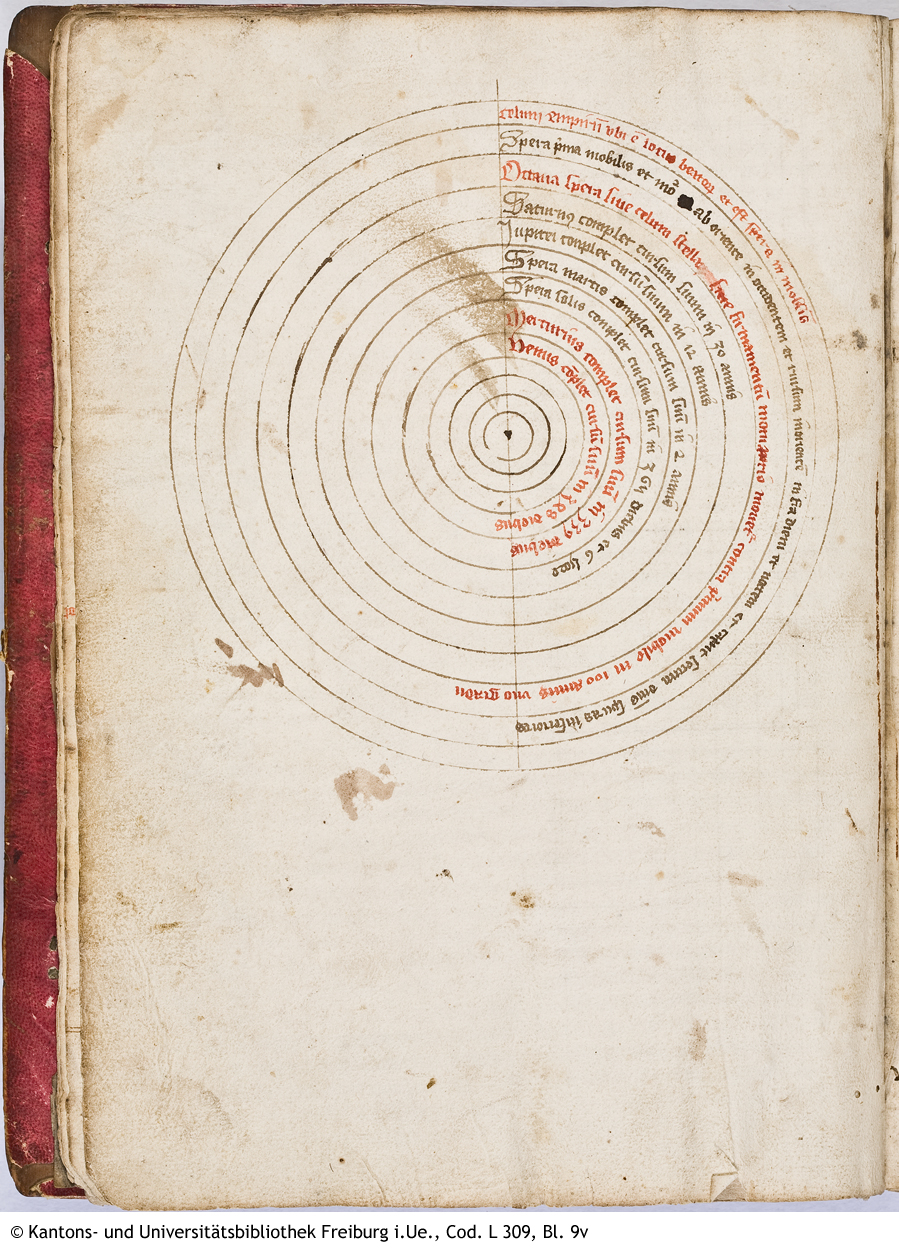 celum empireū vbi ē locus beatoꝝ et est spera in mobilis
Spera p̄ma mobilis et mō ab oriente in occidentem et rursum in oriente in diem et noctem et rapit secum om̄s speras inferiores
Octaua spera siue celum stellatū siue firmamentū motu p̄prio mouet̄ contra p̄mum mobile in 100 Annis vno gradu
Saturnꝰ complet cursum suum in 30 annis
Jupiter conplet cursū suum in 12 Annis
Spera martis complet cursum suū in 2 annis
Spera solis complet cursum suū in 364 diebus et 6 horis
Mercurius complet cursum suū in 339 diebus
Venus cōplet cursū suū in 348 diebus
© Kantons- und Universitätsbibliothek Freiburg i.Ue., Cod. L 309, Bl. 9v